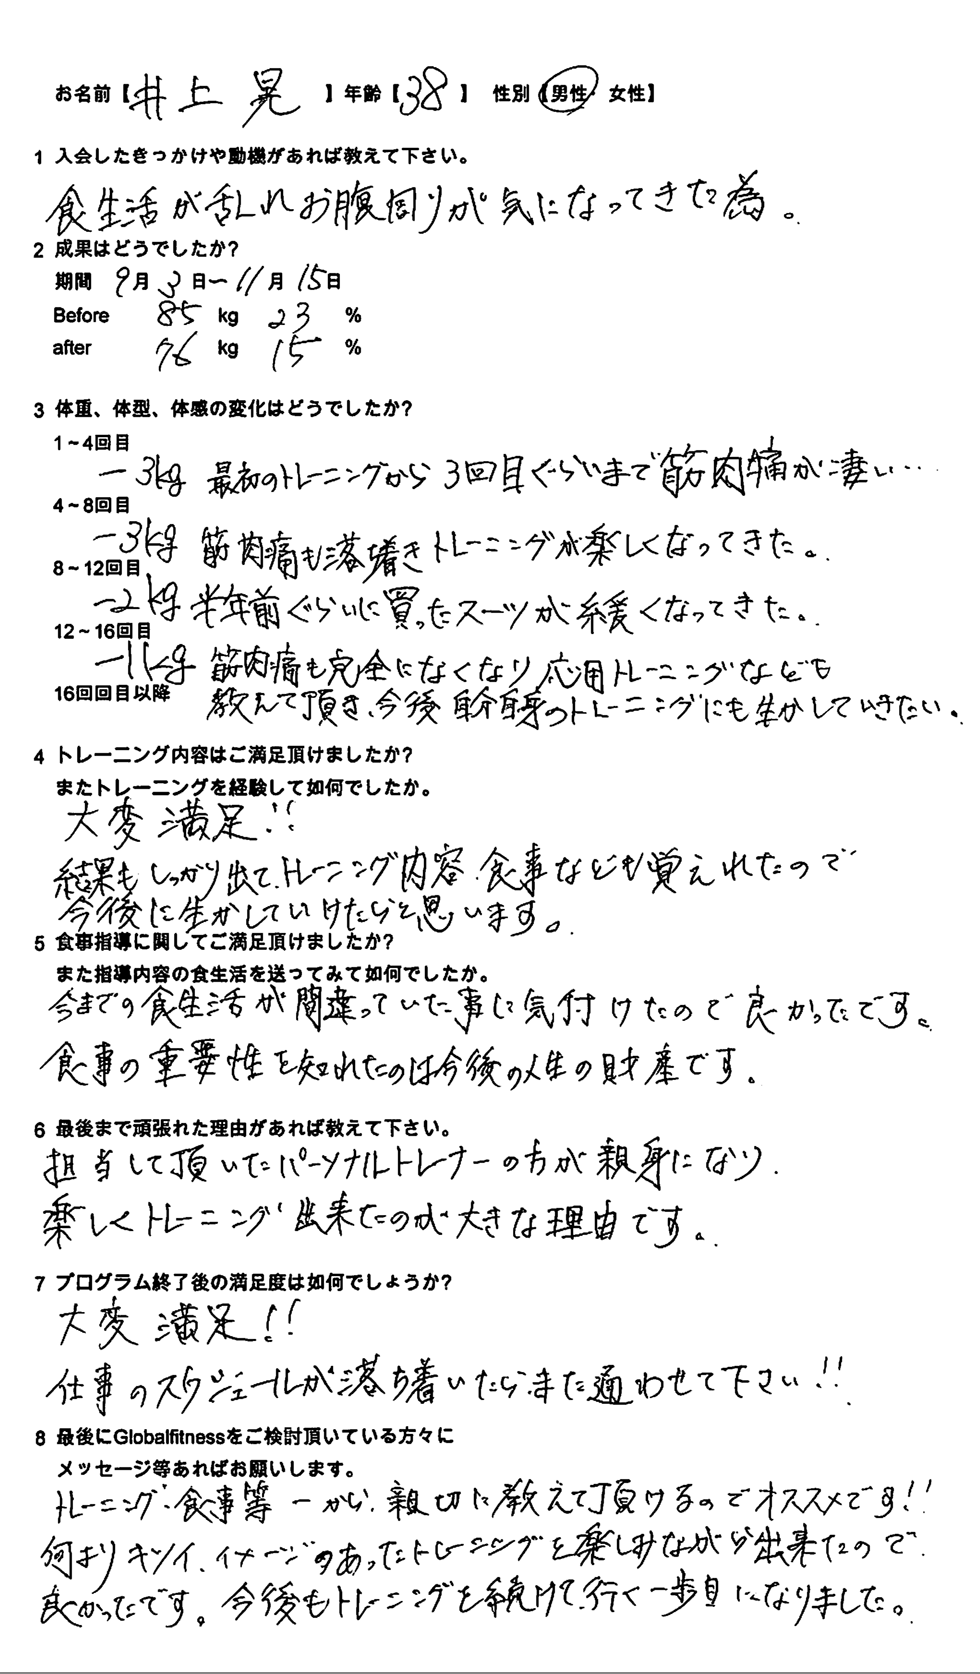 お名前【井上 晃 】年齢【38 】 性別【男性 女性】
1 入会したきっかけや動機があれば教えて下さい。
食生活が乱れお腹周りが気になってきた為。
2 成果はどうでしたか?
期間 9月3日〜11月15日
Before 85 kg 23 %
after 76 kg 15 %
3 体重、体型、体感の変化はどうでしたか?
1~4回目
-3kg 最初のトレーニングから3回目ぐらいまで筋肉痛が凄い…
4~8回目
-3kg 筋肉痛も落ち着きトレーニングが楽しくなってきた。
8~12回目
-2kg 半年前ぐらいに買ったスーツが緩くなってきた。
12~16回目
-1kg 筋肉痛も完全になくなり応用トレーニングなども
16回回目以降 教えて頂き、今後自分自身のトレーニングにも生かしていきたい。
4 トレーニング内容はご満足頂けましたか?
またトレーニングを経験して如何でしたか。
大変満足!!
結果もしっかり出て、トレーニング内容、食事なども覚えれたので
今後に生かしていけたらと思います。
5 食事指導に関してご満足頂けましたか?
また指導内容の食生活を送ってみて如何でしたか。
今までの食生活が間違っていた事に気付けたので良かったです。
食事の重要性を知れたのは今後の人生の財産です。
6 最後まで頑張れた理由があれば教えて下さい。
担当して頂いたパーソナルトレーナーの方が親身になり、
楽しくトレーニング出来たのが大きな理由です。
7 プログラム終了後の満足度は如何でしょうか?
大変満足!!
仕事のスケジュールが落ち着いたら、また通わせて下さい!!
8 最後にGlobalfitnessをご検討頂いている方々に
メッセージ等あればお願いします。
トレーニング・食事等 一から、親切に教えて頂けるのでオススメです!!
何よりキツイ、イメージのあったトレーニングを楽しみながら出来たので、
良かったです。今後もトレーニングを続けて、行く一歩目になりました。